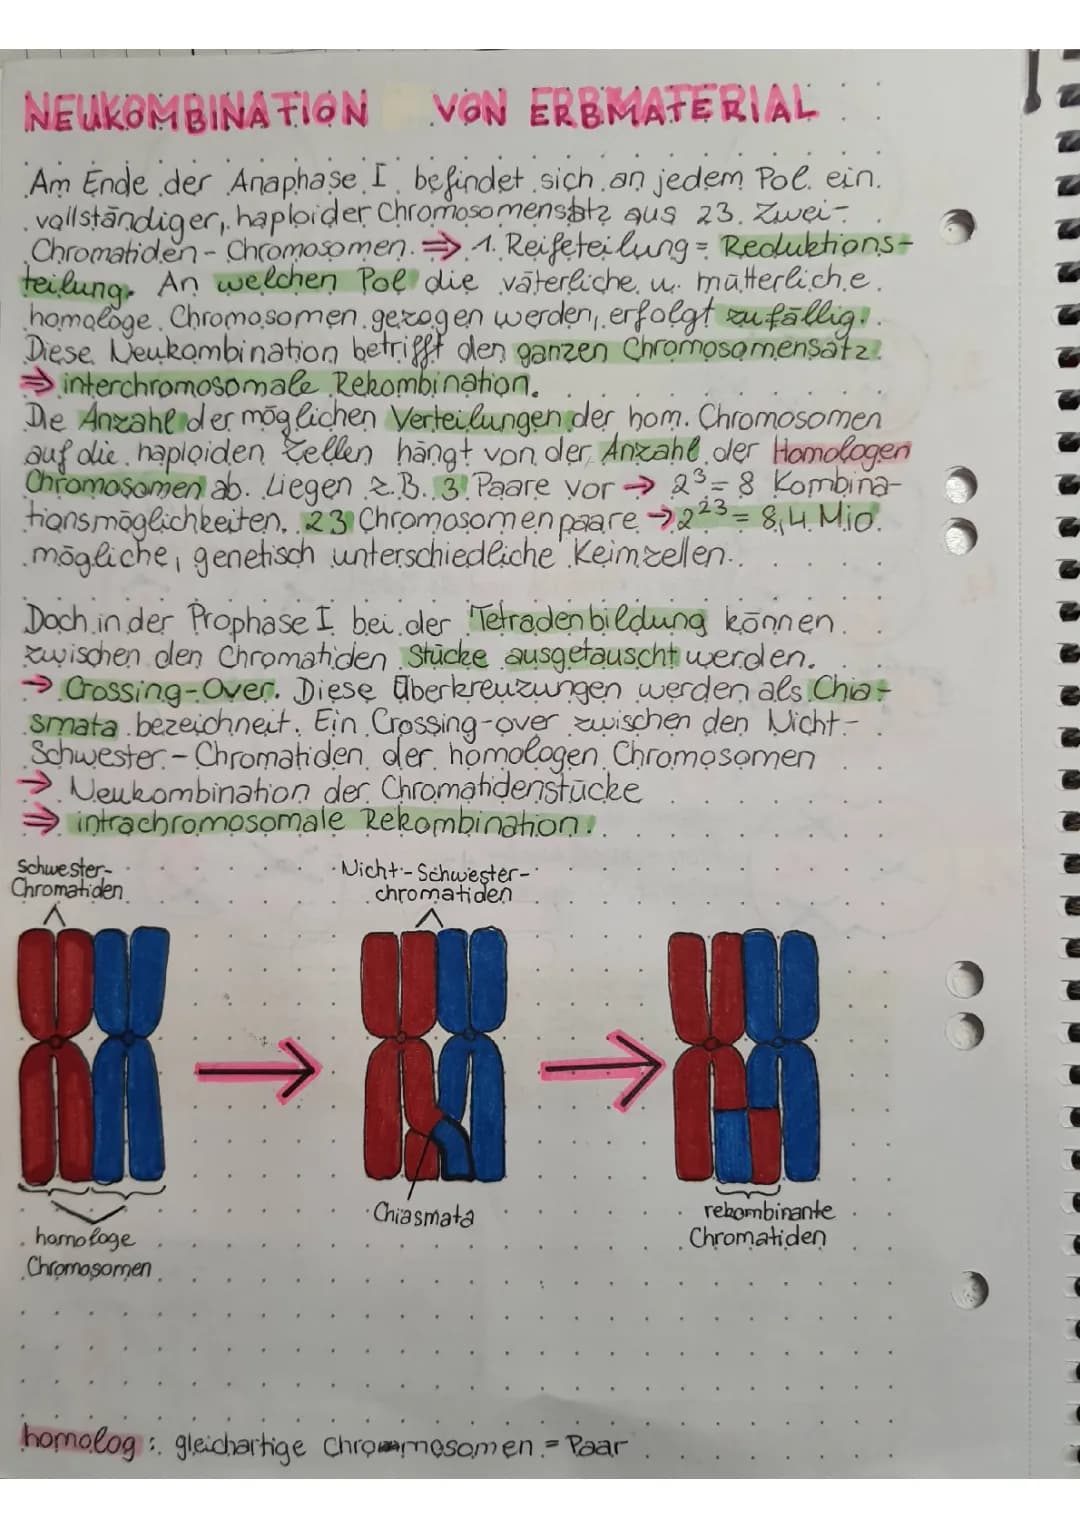 NEUKOMBINATION VON ERBMATERIAL
Am Ende der Anaphase I befindet sich an jedem Pol ein
vollständiger, haploider Chromosomensatz aus 23 Zwei-
Chromatiden-Chromosomen. ⇒ 1. Reifeteilung = Reduktions-
teilung. An welchen Pol die väterliche u. mütterliche
homologe Chromosomen gezogen werden, erfolgt zufällig.
Diese Neukombination betrifft den ganzen Chromosomensatz.
⇒ interchromosomale Rekombination.
Die Anzahl der möglichen Verteilungen der hom. Chromosomen
auf die haploiden Zellen hängt von der Anzahl der Homologen
Chromosomen ab. Liegen z.B. 3 Paare vor → 2³ = 8 Kombina-
tionsmöglichkeiten. 23 Chromosomenpaare → 2²³ = 8,4 Mio.
mögliche, genetisch unterschiedliche Keimzellen.
Doch in der Prophase I bei der Tetradenbildung können
zwischen den Chromatiden Stücke ausgetauscht werden.
→ Crossing-Over. Diese Überkreuzungen werden als Chia-
smata bezeichneit. Ein Crossing-over zwischen den Nicht-
Schwester-Chromatiden der homologen Chromosomen
→ Neukombination der Chromatidenstücke
⇒ intrachromosomale Rekombination.
Schwester-
Chromatiden
Nicht-Schwester-
chromatiden
homologe
Chromosomen
Chiasmata
rekombinante
Chromatiden
homolog: gleichartige Chromosomen = Paar